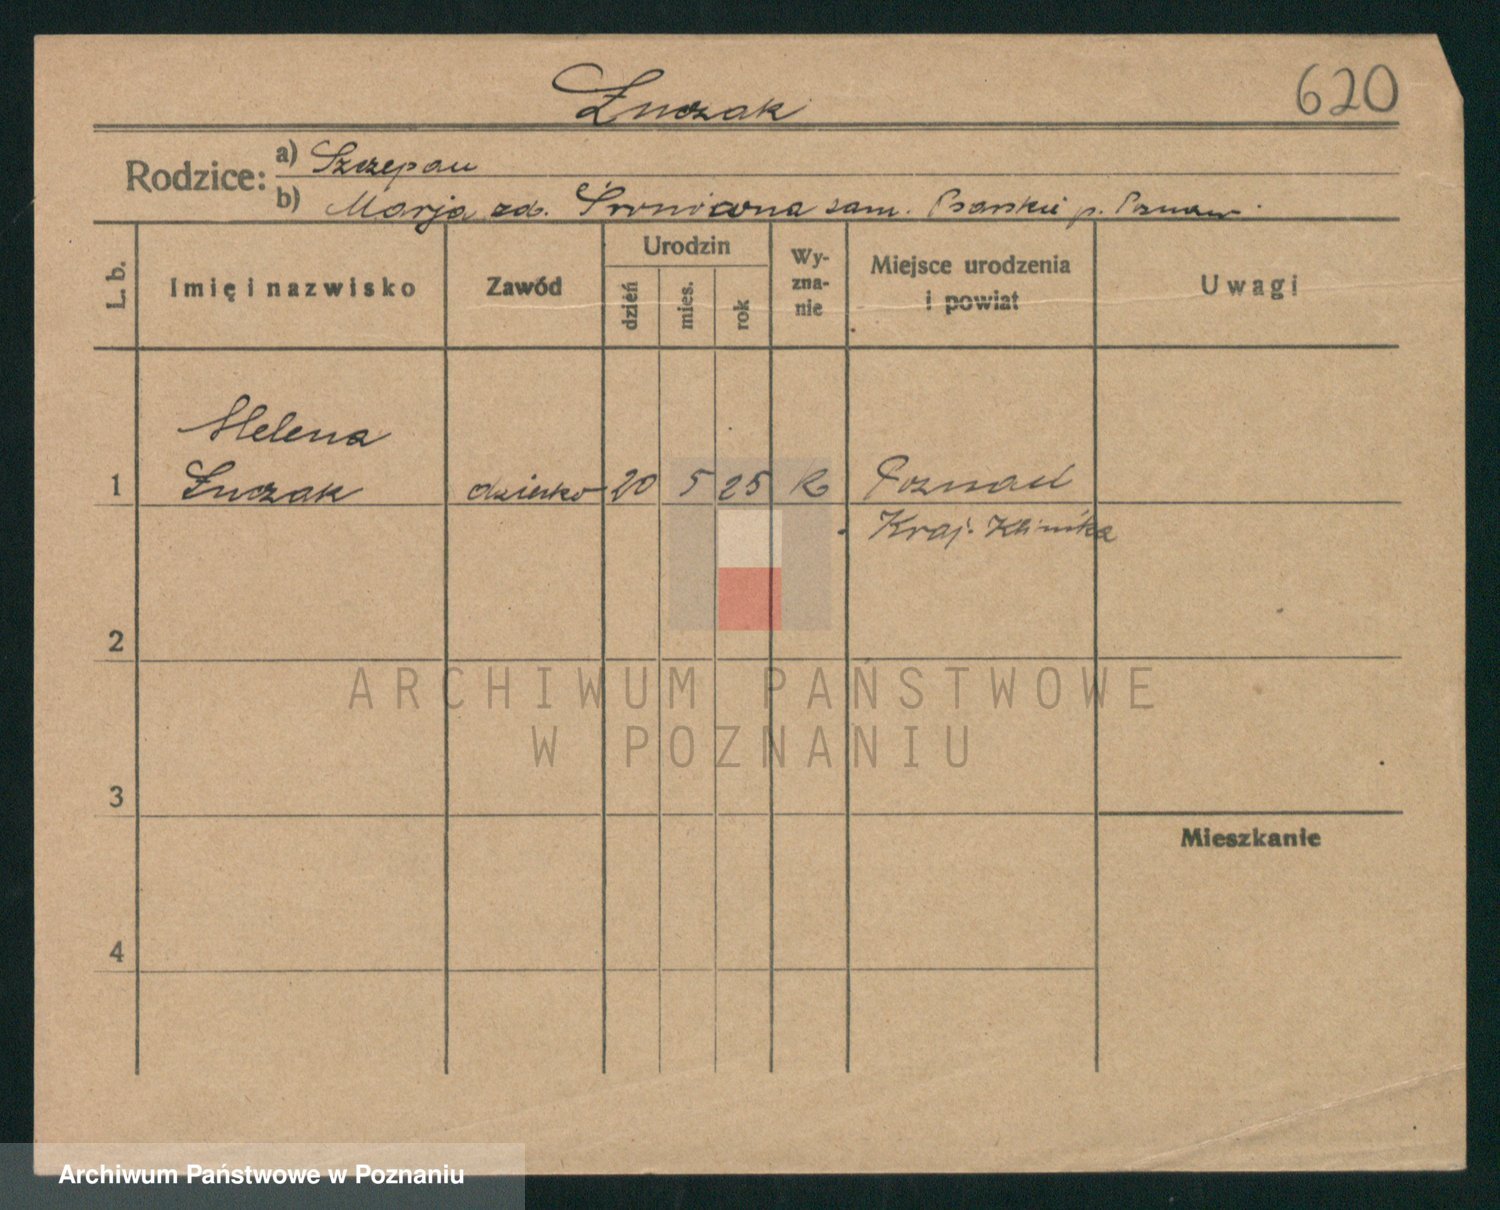 Żuczak
620
Rodzice: a) Szczepan
b) Marja zd. sam. Psarskie p. Poznan.
L. b.
Imię i nazwisko
Zawód
Urodzin
dzień
mies.
rok
Wy-
zna-
nie
Miejsce urodzenia
i powiat
Uwagi
Helena
1 Żuczak dziecko 20 5 25 R Poznań
Kraj. Klinika
2
3
4
Mieszkanie
ARCHIWUM PAŃSTWOWE
W POZNANIU
Archiwum Państwowe w Poznaniu